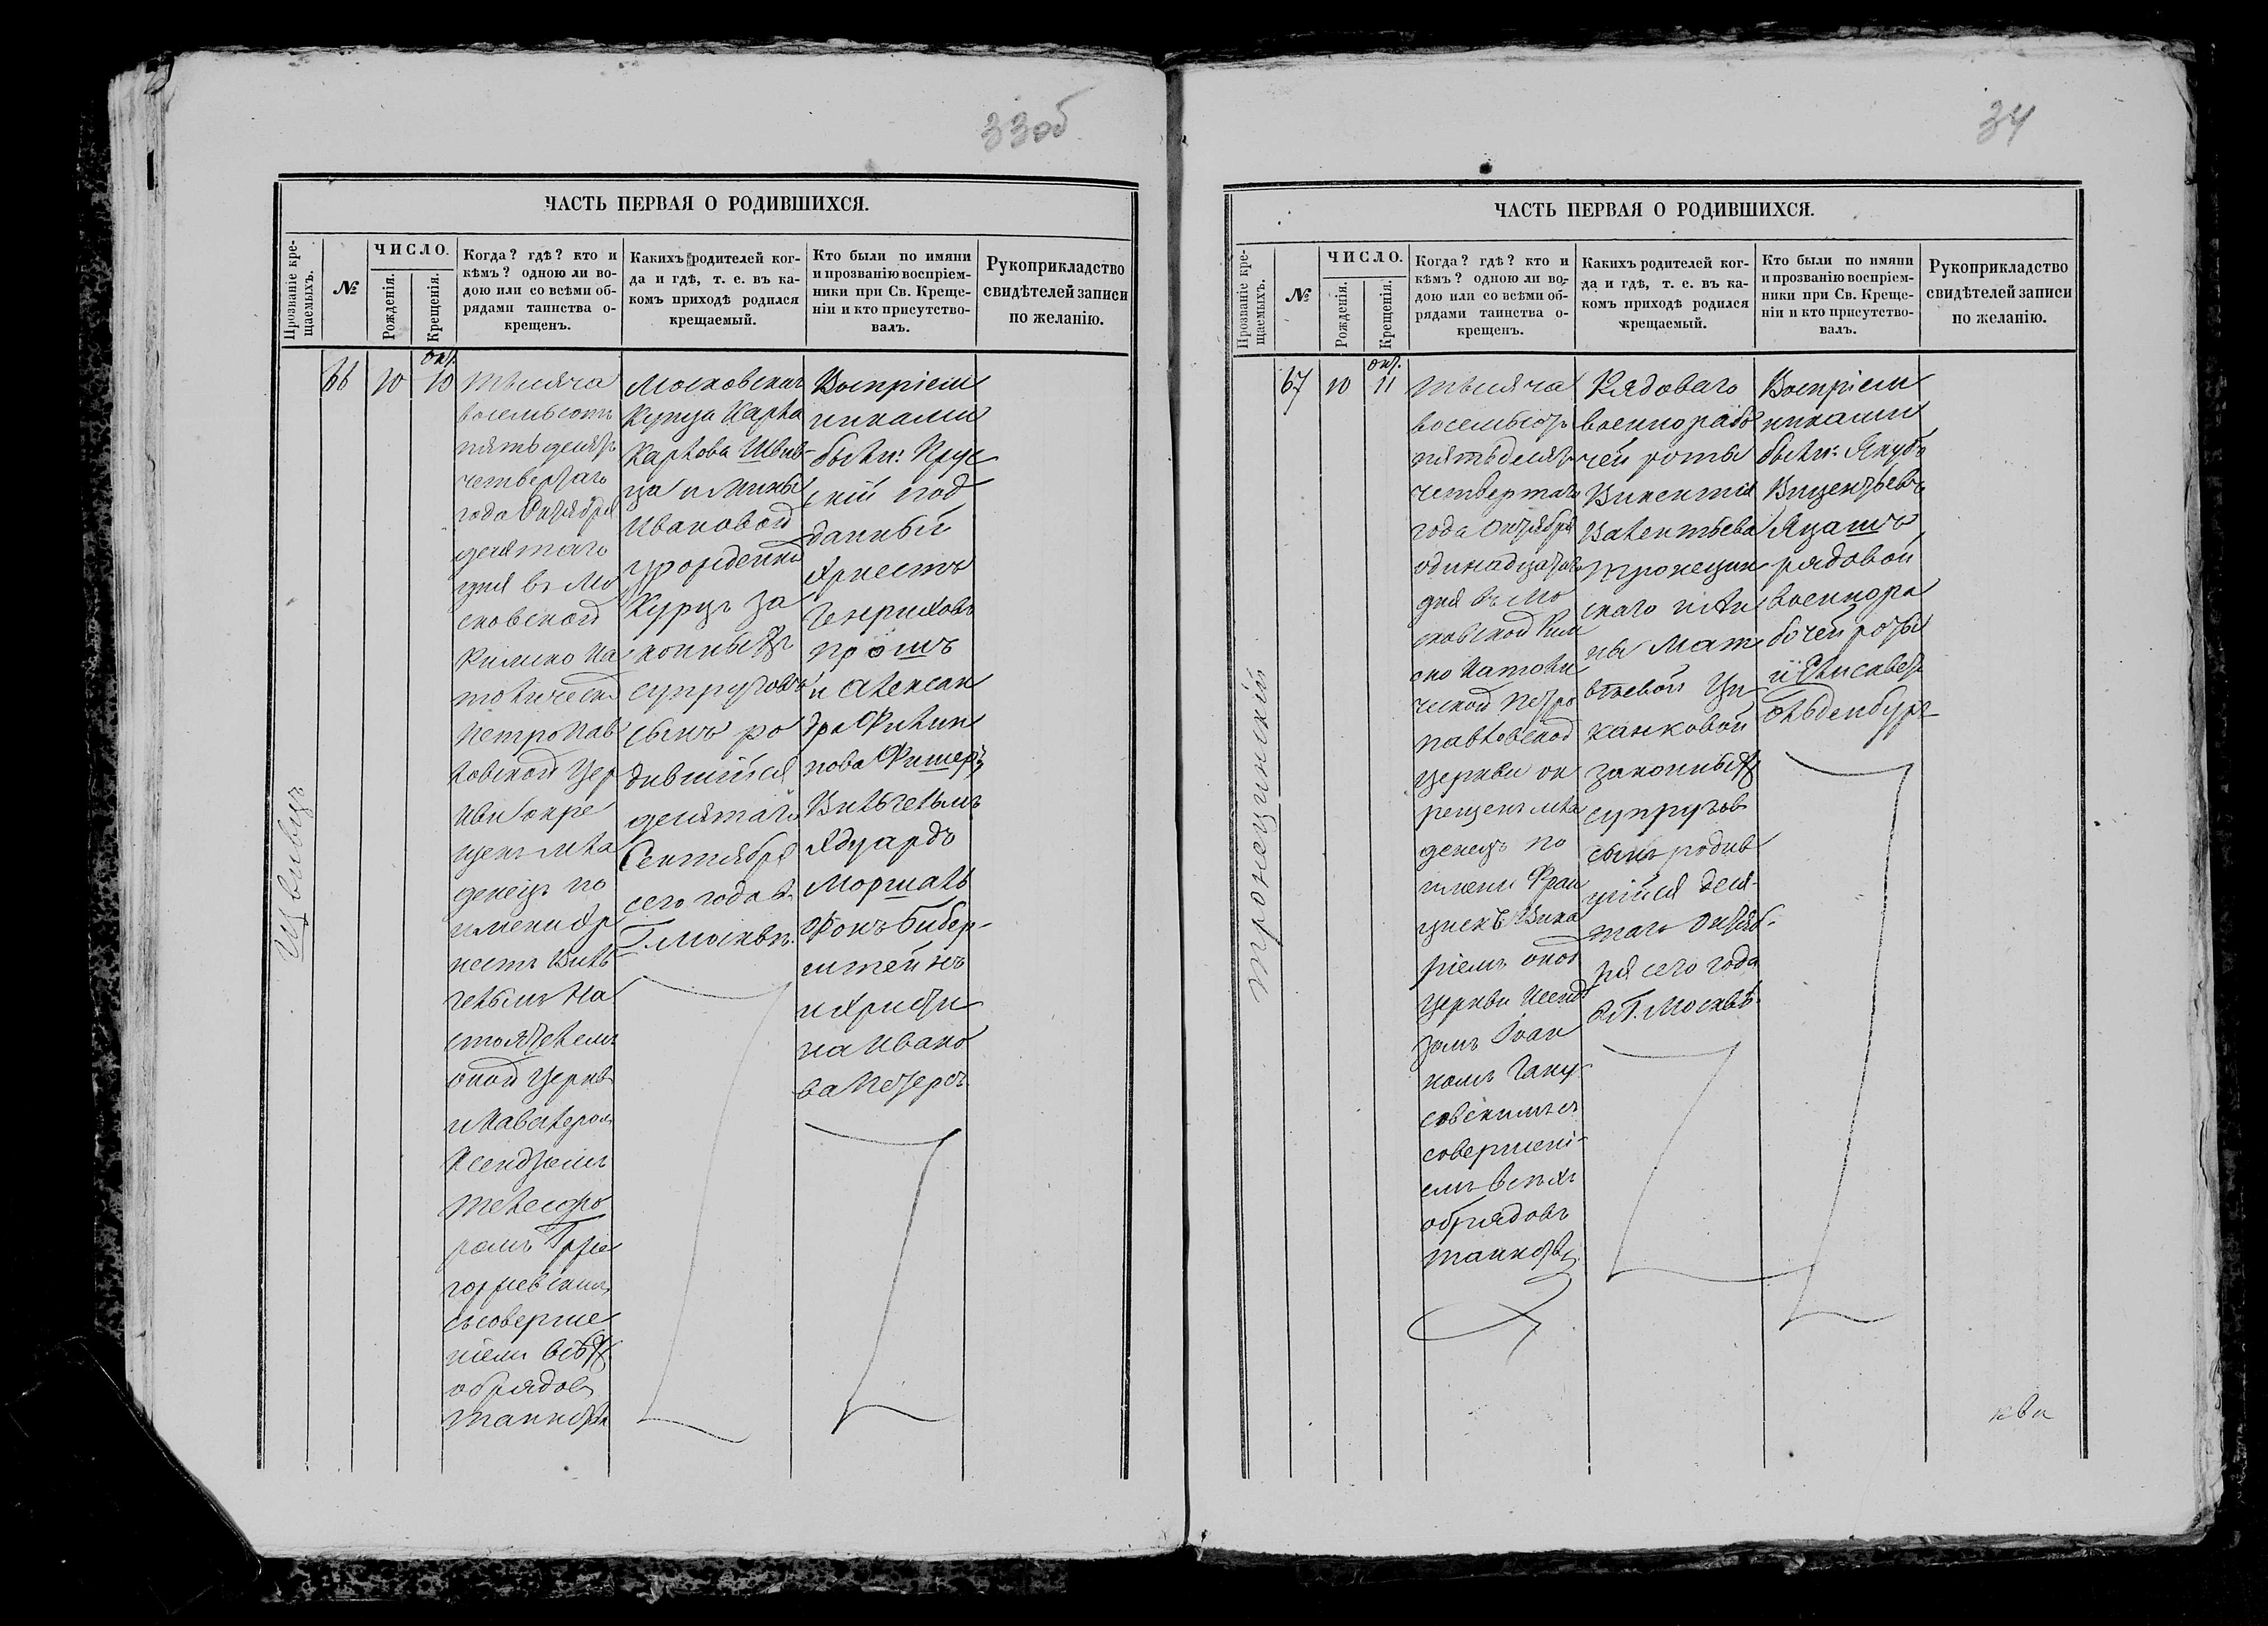 33об
ЧАСТЬ ПЕРВАЯ О РОДИВШИХСЯ.
Прозваніе кре-
щаемыхъ.
№
ЧИСЛО.
Рожденія.
Крещенія.
Когда? гдѣ? кто и
кѣмъ? одною ли во-
дою или со всѣми об-
рядами таинства о-
крещенъ.
Какихъ родителей ког-
да и гдѣ, т. е. въ ка-
комъ приходѣ родился
крещаемый.
Кто были по имяни
и прозванію воспріем-
ники при Св. Креще-
ніи и кто присутство-
валъ.
Рукоприкладство
свидѣтелей записи
по желанію.
66
10
Окт.
10
Тысяча
восемьсотъ
пятьдесятъ
четвертаго
года Октября
десятаго
дня въ Мо
сковской
Римско Ка
толическ
Петро Пав
ловской Цер
кви Окре
щенъ мла
денецъ по
имени Эр
нестъ Виль
гельмъ На
стоятелемъ
оной Церкви
и Кавалеромъ
Ксендзомъ
Телесфо
ромъ
съ соверше
ніемъ всѣхъ
обрядовъ
таинства
Московскаго
Купца Карла
Карлова Швив-
ца и Мины
Ивановой
урожденной
Курцъ за
конныхъ
супруговъ
сынъ ро
дившійся
десятаго
Сентября
сего года въ
Г. Москвѣ.
Воспріем
никами
были: Прус
скій под
данный
Эрнестъ
Генриховъ
и Алексан
дра Филип
пова Фишеръ,
Вильгельмъ
Эдуардъ
Маршалъ
Фонъ Бибер-
штейнъ
и Христи
на Ивано
ва Петерсъ
34
ЧАСТЬ ПЕРВАЯ О РОДИВШИХСЯ.
Прозваніе кре-
щаемыхъ.
№
ЧИСЛО.
Рожденія.
Крещенія.
Когда? гдѣ? кто и
кѣмъ? одною ли во-
дою или со всѣми об-
рядами таинства о-
крещенъ.
Какихъ родителей ког-
да и гдѣ, т. е. въ ка-
комъ приходѣ родился
крещаемый.
Кто были по имяни
и прозванію воспріем-
ники при Св. Креще-
ніи и кто присутство-
валъ.
Рукоприкладство
свидѣтелей записи
по желанію.
Тронецинскій
67
10
Окт.
11
Тысяча
восемьсотъ
пятьдесятъ
четвертаго
года Октября
одинадцатаго
дня въ Мо
сковской Рим
ско Католи
ческой Петро
павловской
церкви ок
рещенъ мла
денецъ по
имени Фран
цискъ Вика
ріемъ оной
Церкви Ксенд
зомъ Іоан
номъ Гану
совскимъ съ
совершені-
емъ всѣхъ
обрядовъ
таинства
Рядоваго
военнорабо
чей роты
Викентія
Валентьева
Тронецин
скаго и Ан
ны Мат
вѣевой Ци
ханковой
законныхъ
супруговъ
сынъ родив
шійся деся-
таго Октяб-
ря сего года
въ Г. Москвѣ
Воспріем
никами
были: Якубъ
Вицентьевъ
рядовой
военнора
бочей роты
и Елисавета
Ольденбургъ